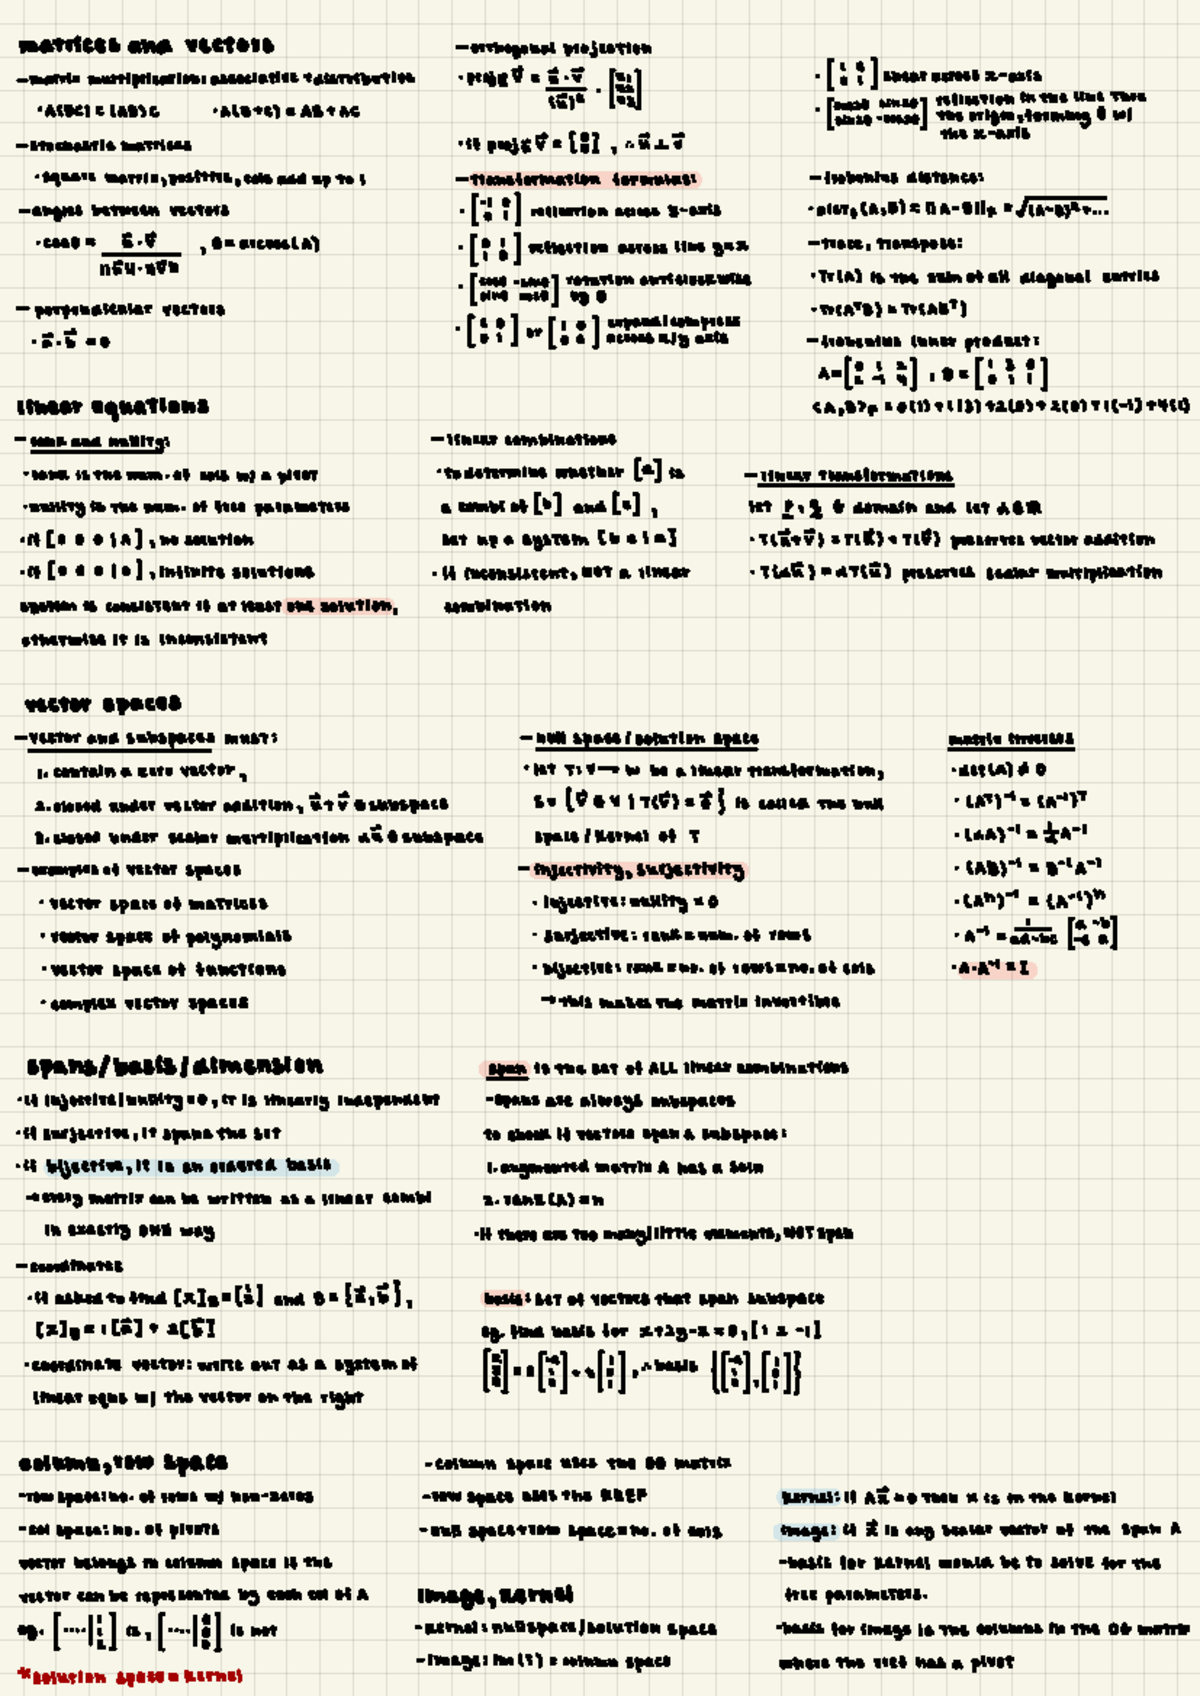 matrices and vectors
- matrix multiplication: associative + distributive
· A(BC) = (AB)C · A(B+C) = AB + AC
- stochastic matrices
· square matrix, positive, cols add up to 1
- angles between vectors
· cosθ = u·v / ||u||·||v|| , θ = arccos(A)
- perpendicular vectors
· a·b = 0
- orthogonal projection
· if proj v = [0 0], ∴ u ⊥ v
- transformation formulas:
· [-1 0 0 1] reflection across y-axis
· [0 1 1 0] reflection across line y=x
· [cosθ -sinθ sinθ cosθ] rotation anticlockwise by θ
or expand/compress across x/y axis
shear across x-axis
reflection in the line thru
the origin, forming θ w/
the x-axis
- frobenius distance:
· dist_F(A,B) = ||A-B||_F = √(A-B)²+...
- trace, transpose:
· Tr(A) is the sum of all diagonal entries
· Tr(AᵀB) = Tr(ABᵀ)
- frobenius inner product:
A = [0 1 2 2 -1 4] , B = [1 3 0 0 1 1]
linear equations
- rank and nullity:
· rank is the num. of cols w/ a pivot
· nullity is the num. of free parameters
· if [0 0 0 | A], no solution
· if [0 0 0 | 0], infinite solutions
system is consistent if at least one solution,
otherwise it is inconsistent
- linear combinations
· to determine whether [a] is
a combi of [b] and [c],
set up a system [b c | a]
· if inconsistent, NOT a linear
combination
- linear transformations
domain and let
· T(u+v) = T(u) + T(v) preserves vector addition
· T(αu) = αT(u) preserves scalar multiplication
vector spaces
- vector and subspaces must:
1. contain a zero vector,
2. closed under vector addition, u+v ∈ subspace
3. closed under scalar multiplication αu ∈ subspace
- examples of vector spaces
· vector space of matrices
· vector space of polynomials
· vector space of functions
· complex vector spaces
- null space/solution space
· let T: V → W be a linear transformation,
S = {v ∈ V | T(v) = 0} is called the null
space/kernel of T
- injectivity, surjectivity
· injective: nullity = 0
· surjective: rank = num. of rows
· bijective: rank = no. of rows = no. of cols
→ this makes the matrix invertible
matrix inverses
· det(A) ≠ 0
· (Aᵀ)⁻¹ = (A⁻¹)ᵀ
· (αA)⁻¹ = 1/α A⁻¹
· (AB)⁻¹ = B⁻¹A⁻¹
· (Aⁿ)⁻¹ = (A⁻¹)ⁿ
· A⁻¹ = 1/ad-bc [d -b -c a]
· A·A⁻¹ = I
spans/basis/dimension
· if injective/nullity = 0, it is linearly independent
· if surjective, it spans the set
· if bijective, it is an ordered basis
→ every matrix can be written as a linear combi
in exactly ONE way
- coordinates
· if asked to find [x]_B = [1 2] and B = {a, b},
[x]_B = 1[a] + 2[b]
· coordinate vector: write out as a system of
linear eqns w/ the vector on the right
span is the set of ALL linear combinations
- spans are always subspaces
to show if vectors span a subspace:
1. augmented matrix A has a soln
2. rank(A) = n
· if there are too many/little elements, NOT span
basis: set of vectors that span subspace
eg. find basis for x+2y-z=0, [1 2 -1]
∴ basis
column, row space
- row space: no. of rows w/ non-zeros
- col space: no. of pivots
vector belongs in column space if the
vector can be represented by each col of A
eg. is, is not
*solution space = kernel
- column space uses the OG matrix
- row space uses the RREF
- null space + row space = no. of cols
image, kernel
- kernel: nullspace/solution space
- image: Im(T) = column space
kernel: if Ax = 0 then x is in the kernel
image: if x is any scalar vector of the span A
- basis for kernel would be to solve for the
free parameters.
- basis for image is the columns in the OG matrix
where the rref has a pivot